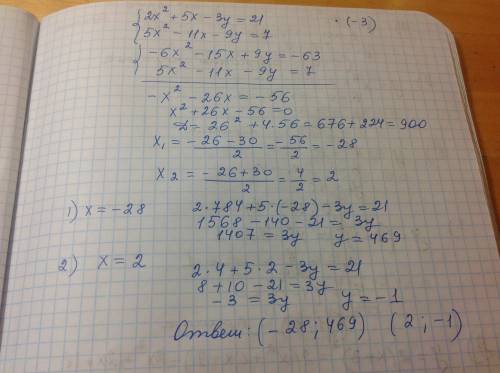 {2x² + 5x - 3y = 21 · (-3)
{5x² - 11x - 9y = 7
{-6x² - 15x + 9y = -63
{5x² - 11x - 9y = 7
-x² - 26x = -56
x² + 26x - 56 = 0
D = 26² + 4·56 = 676 + 224 = 900
x₁ = (-26 - 30)/2 = -56/2 = -28
x₂ = (-26 + 30)/2 = 4/2 = 2
1) x = -28 2·784 + 5·(-28) - 3y = 21
1568 - 140 - 21 = 3y
1407 = 3y y = 469
2) x = 2 2·4 + 5·2 - 3y = 21
8 + 10 - 21 = 3y
-3 = 3y y = -1
Ответ: (-28; 469) (2; -1)